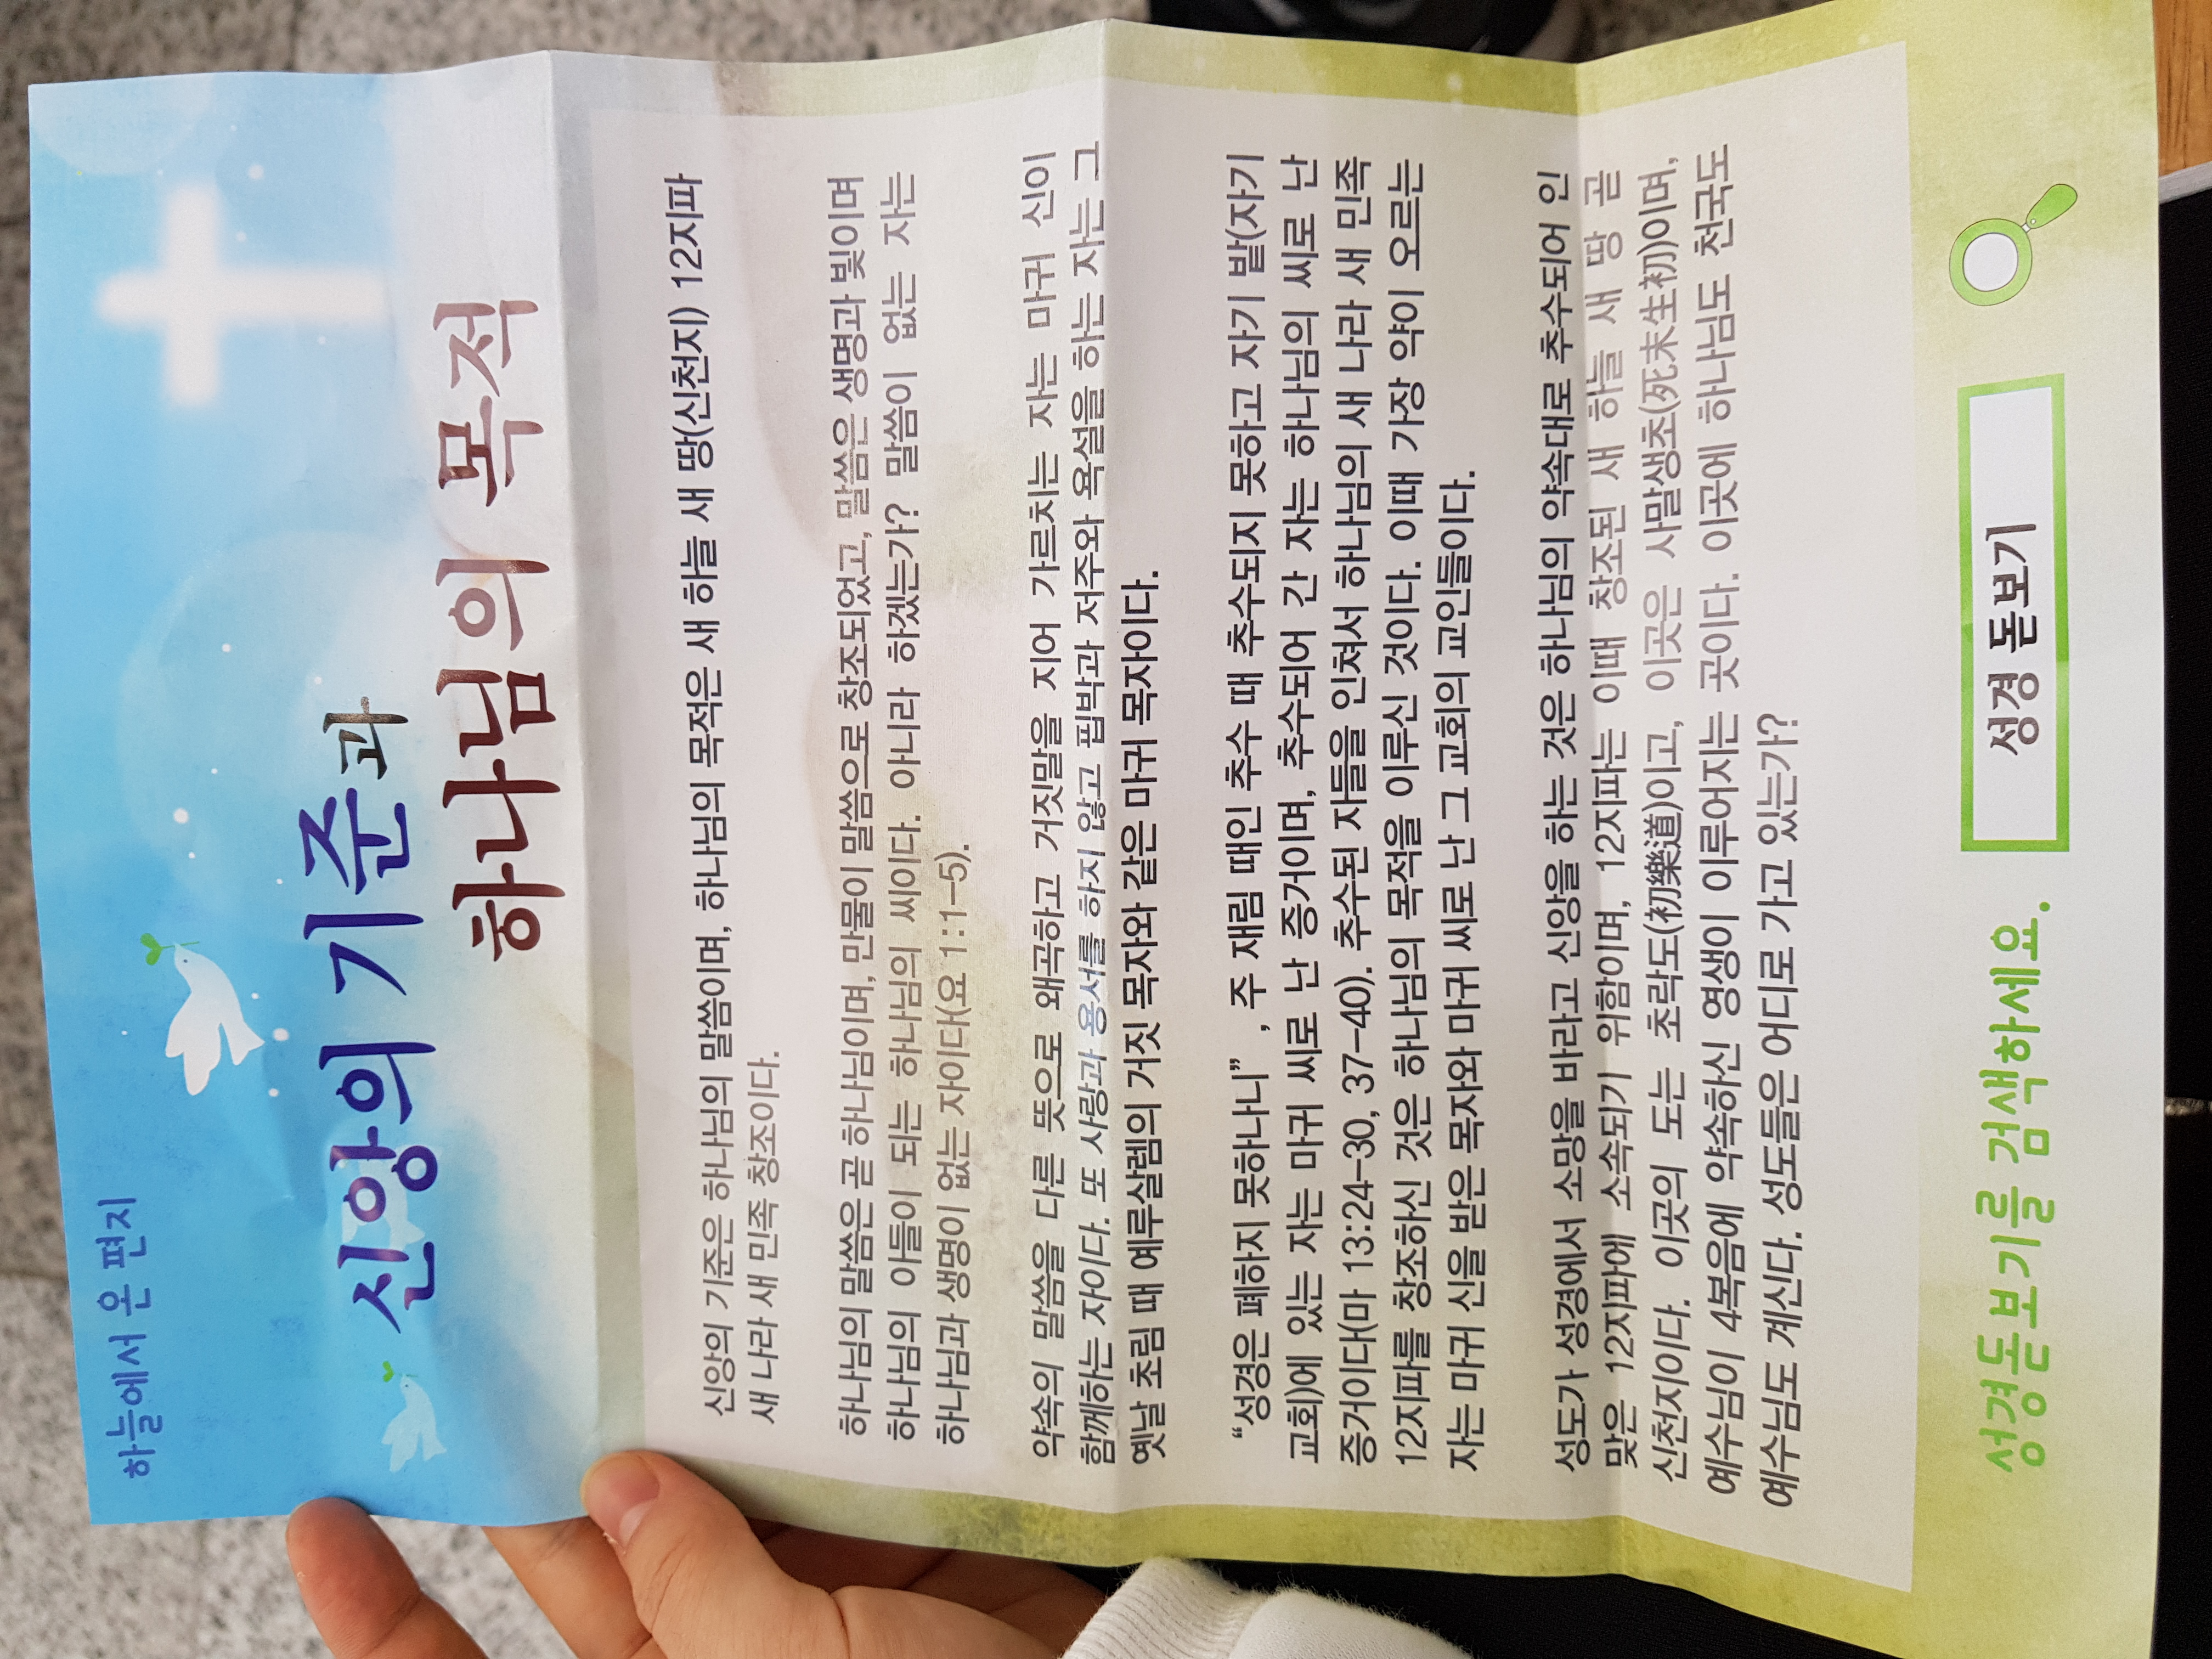 하늘에서 온 편지
신앙의 기준과
하나님의 목적
신앙의 기준은 하나님의 말씀이며, 하나님의 목적은 새 하늘 새 땅(신천지) 12지파
새 나라 새 민족 창조이다.
하나님의 말씀은 곧 하나님이며, 만물이 말씀으로 창조되었고, 말씀은 생명과 빛이며
하나님의 아들이 되는 하나님의 씨이다. 아니라 하겠는가? 말씀이 없는 자는
하나님과 생명이 없는 자이다(요 1:1-5).
약속의 말씀을 다른 뜻으로 왜곡하고 거짓말을 지어 가르치는 자는 마귀 신이
함께하는 자이다. 또 사랑과 용서를 하지 않고 핍박과 저주와 욕설을 하는 자는 그
옛날 초림 때 예루살렘의 거짓 목자와 같은 마귀 목자이다.
“성경은 폐하지 못하나니” , 주 재림 때인 추수 때 추수되지 못하고 자기 밭(자기
교회)에 있는 자는 마귀 씨로 난 증거이며, 추수되어 간 자는 하나님의 씨로 난
증거이다(마 13:24-30, 37-40). 추수된 자들을 인쳐서 하나님의 새 나라 새 민족
12지파를 창조하신 것은 하나님의 목적을 이루신 것이다. 이때 가장 약이 오르는
자는 마귀 신을 받은 목자와 마귀 씨로 난 그 교회의 교인들이다.
성도가 성경에서 소망을 바라고 신앙을 하는 것은 하나님의 약속대로 추수되어 인
맞은 12지파에 소속되기 위함이며, 12지파는 이때 창조된 새 하늘 새 땅 곧
신천지이다. 이곳의 도는 초락도(初樂道)이고, 이곳은 사말생초(死末生初)이며,
예수님이 4복음에 약속하신 영생이 이루어지는 곳이다. 이곳에 하나님도 천국도
예수님도 계신다. 성도들은 어디로 가고 있는가?
성경돋보기를 검색하세요. 성경 돋보기